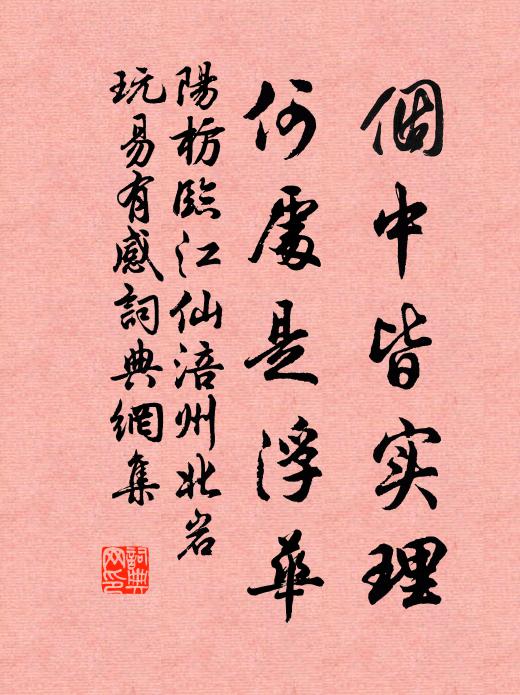 個中皆实理
何處是浮華
陽枋臨江仙涪州北岩
玩易有感詞典網集
詞典网印